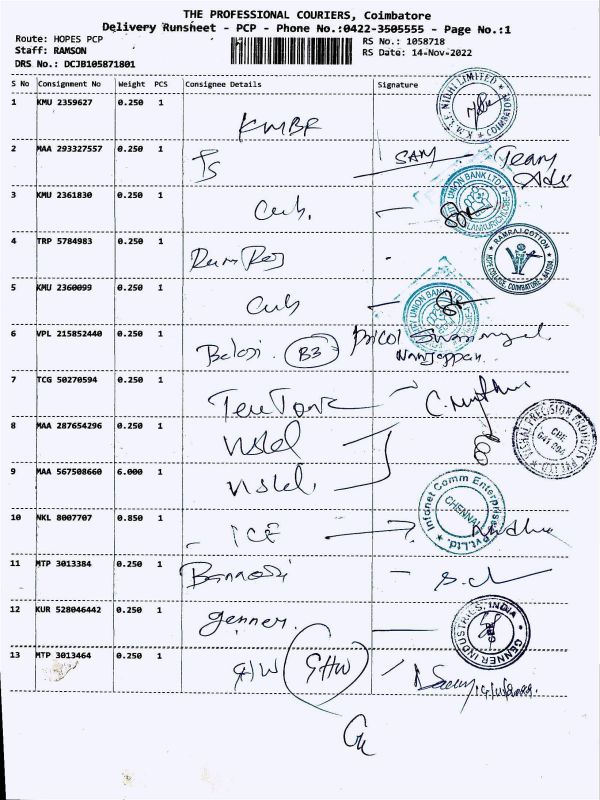 THE PROFESSIONAL COURIERS, Coimbatore
Delivery Runsheet - PCP - Phone No.:0422-3505555 - Page No.:1
Route: HOPES PCP
RS No.: 1058718
Staff: RAMSON
RS Date: 14-Nov-2022
DRS No.: DCJB105871801
S No Consignment No Weight PCS Consignee Details Signature
1 KMU 2359627 0.250 1 KMBF
K.M.B.F. NIDHI LIMITED COIMBATORE
2 MAA 293327557 0.250 1 TS SAM Team
3 KMU 2361830 0.250 1 Cub.
UNION BANK LTD
4 TRP 5784983 0.250 1 Ram Raj
RAMRAJ COTTON
HOPE COLLEGE, COIMBATORE
5 KMU 2360099 0.250 1 Cub
UNION BANK LTD
6 VPL 215852440 0.250 1 Balaji B3 Pricol
Nanjappan
7 TCG 50270594 0.250 1
8 MAA 287654296 0.250 1
PRECISION PRODUCTS PVT LTD
CBE
641 004
9 MAA 567508660 6.000 1
Infonet Comm Enterprises Pvt.Ltd.
CHENNAI
10 NKL 8007707 0.850 1 ICE
11 MTP 3013384 0.250 1
12 KUR 528046442 0.250 1 genner.
GENNER INDUSTRIES, INDIA
13 MTP 3013464 0.250 1 GHW GHW